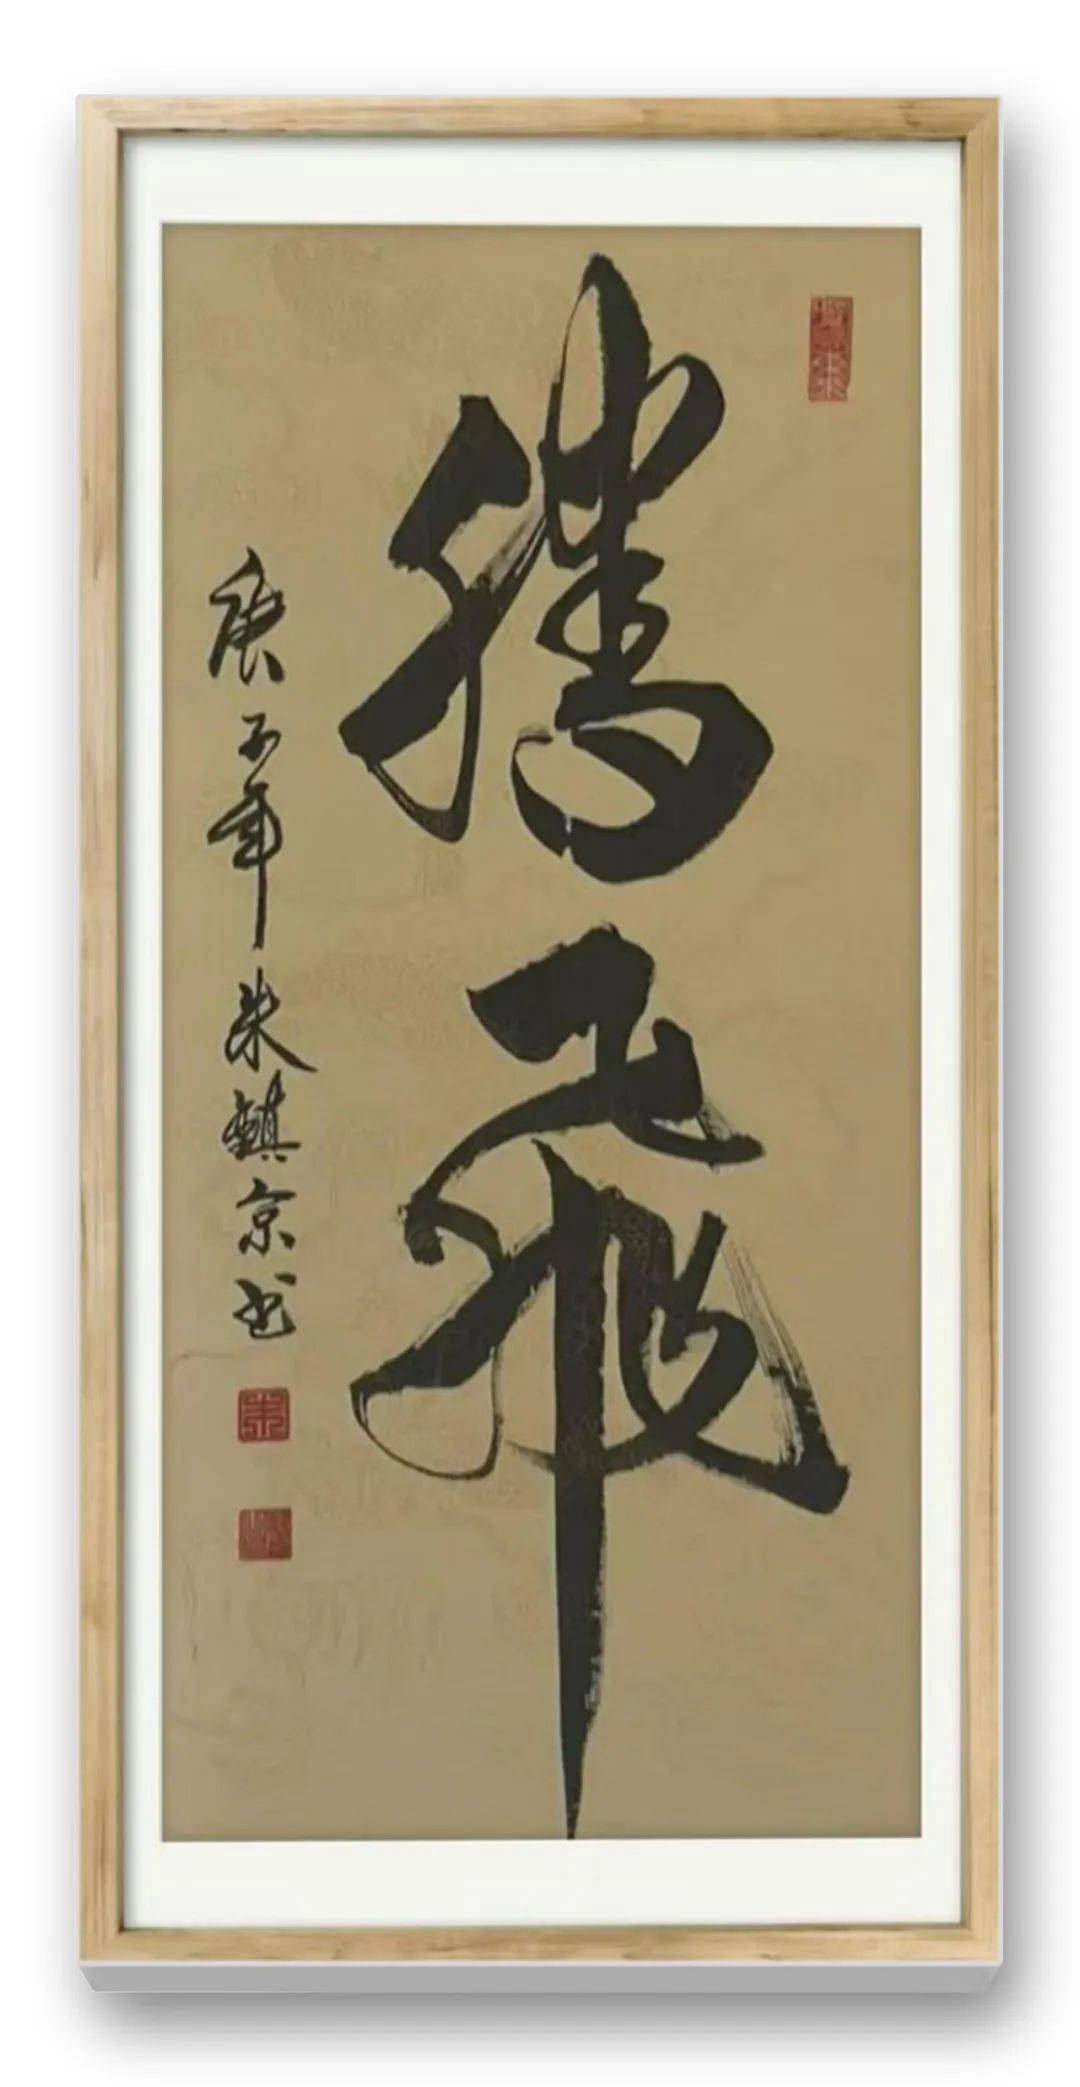 腾飞
庚子年朱镇京书